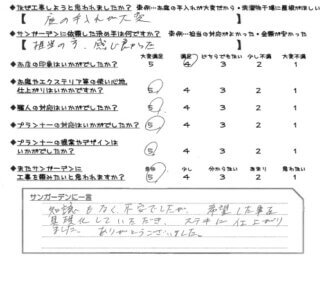 ◆なぜ工事しようと思われましたか？
庭の手入れが大変
◆サンガーデンに依頼した決め手は何ですか？ 事例…担当の対応がよかった・金額が安かった
担当の方、感じ良かった
大変満足 満足 どちらでもない 少し不満 大変不満
◆お店の印象はいかがでしたか？ 5 4 3 2 1
◆お庭やエクステリア等の使い心地、
仕上がりはいかがですか？ 5 4 3 2 1
◆職人の対応はいかがでしたか？ 5 4 3 2 1
◆プランナーの対応はいかがでしたか？ 5 4 3 2 1
◆プランナーの提案やデザインは
いかがでしたか？ 5 4 3 2 1
少し 分からない あまり 思わない
◆またサンガーデンに
工事を頼みたいと思われますか？ 5 4 3 2 1
サンガーデンに一言
知識もなく、不安でしたが、希望した事を
具現化していただき、ステキに仕上がり
ました。ありがとうございました。